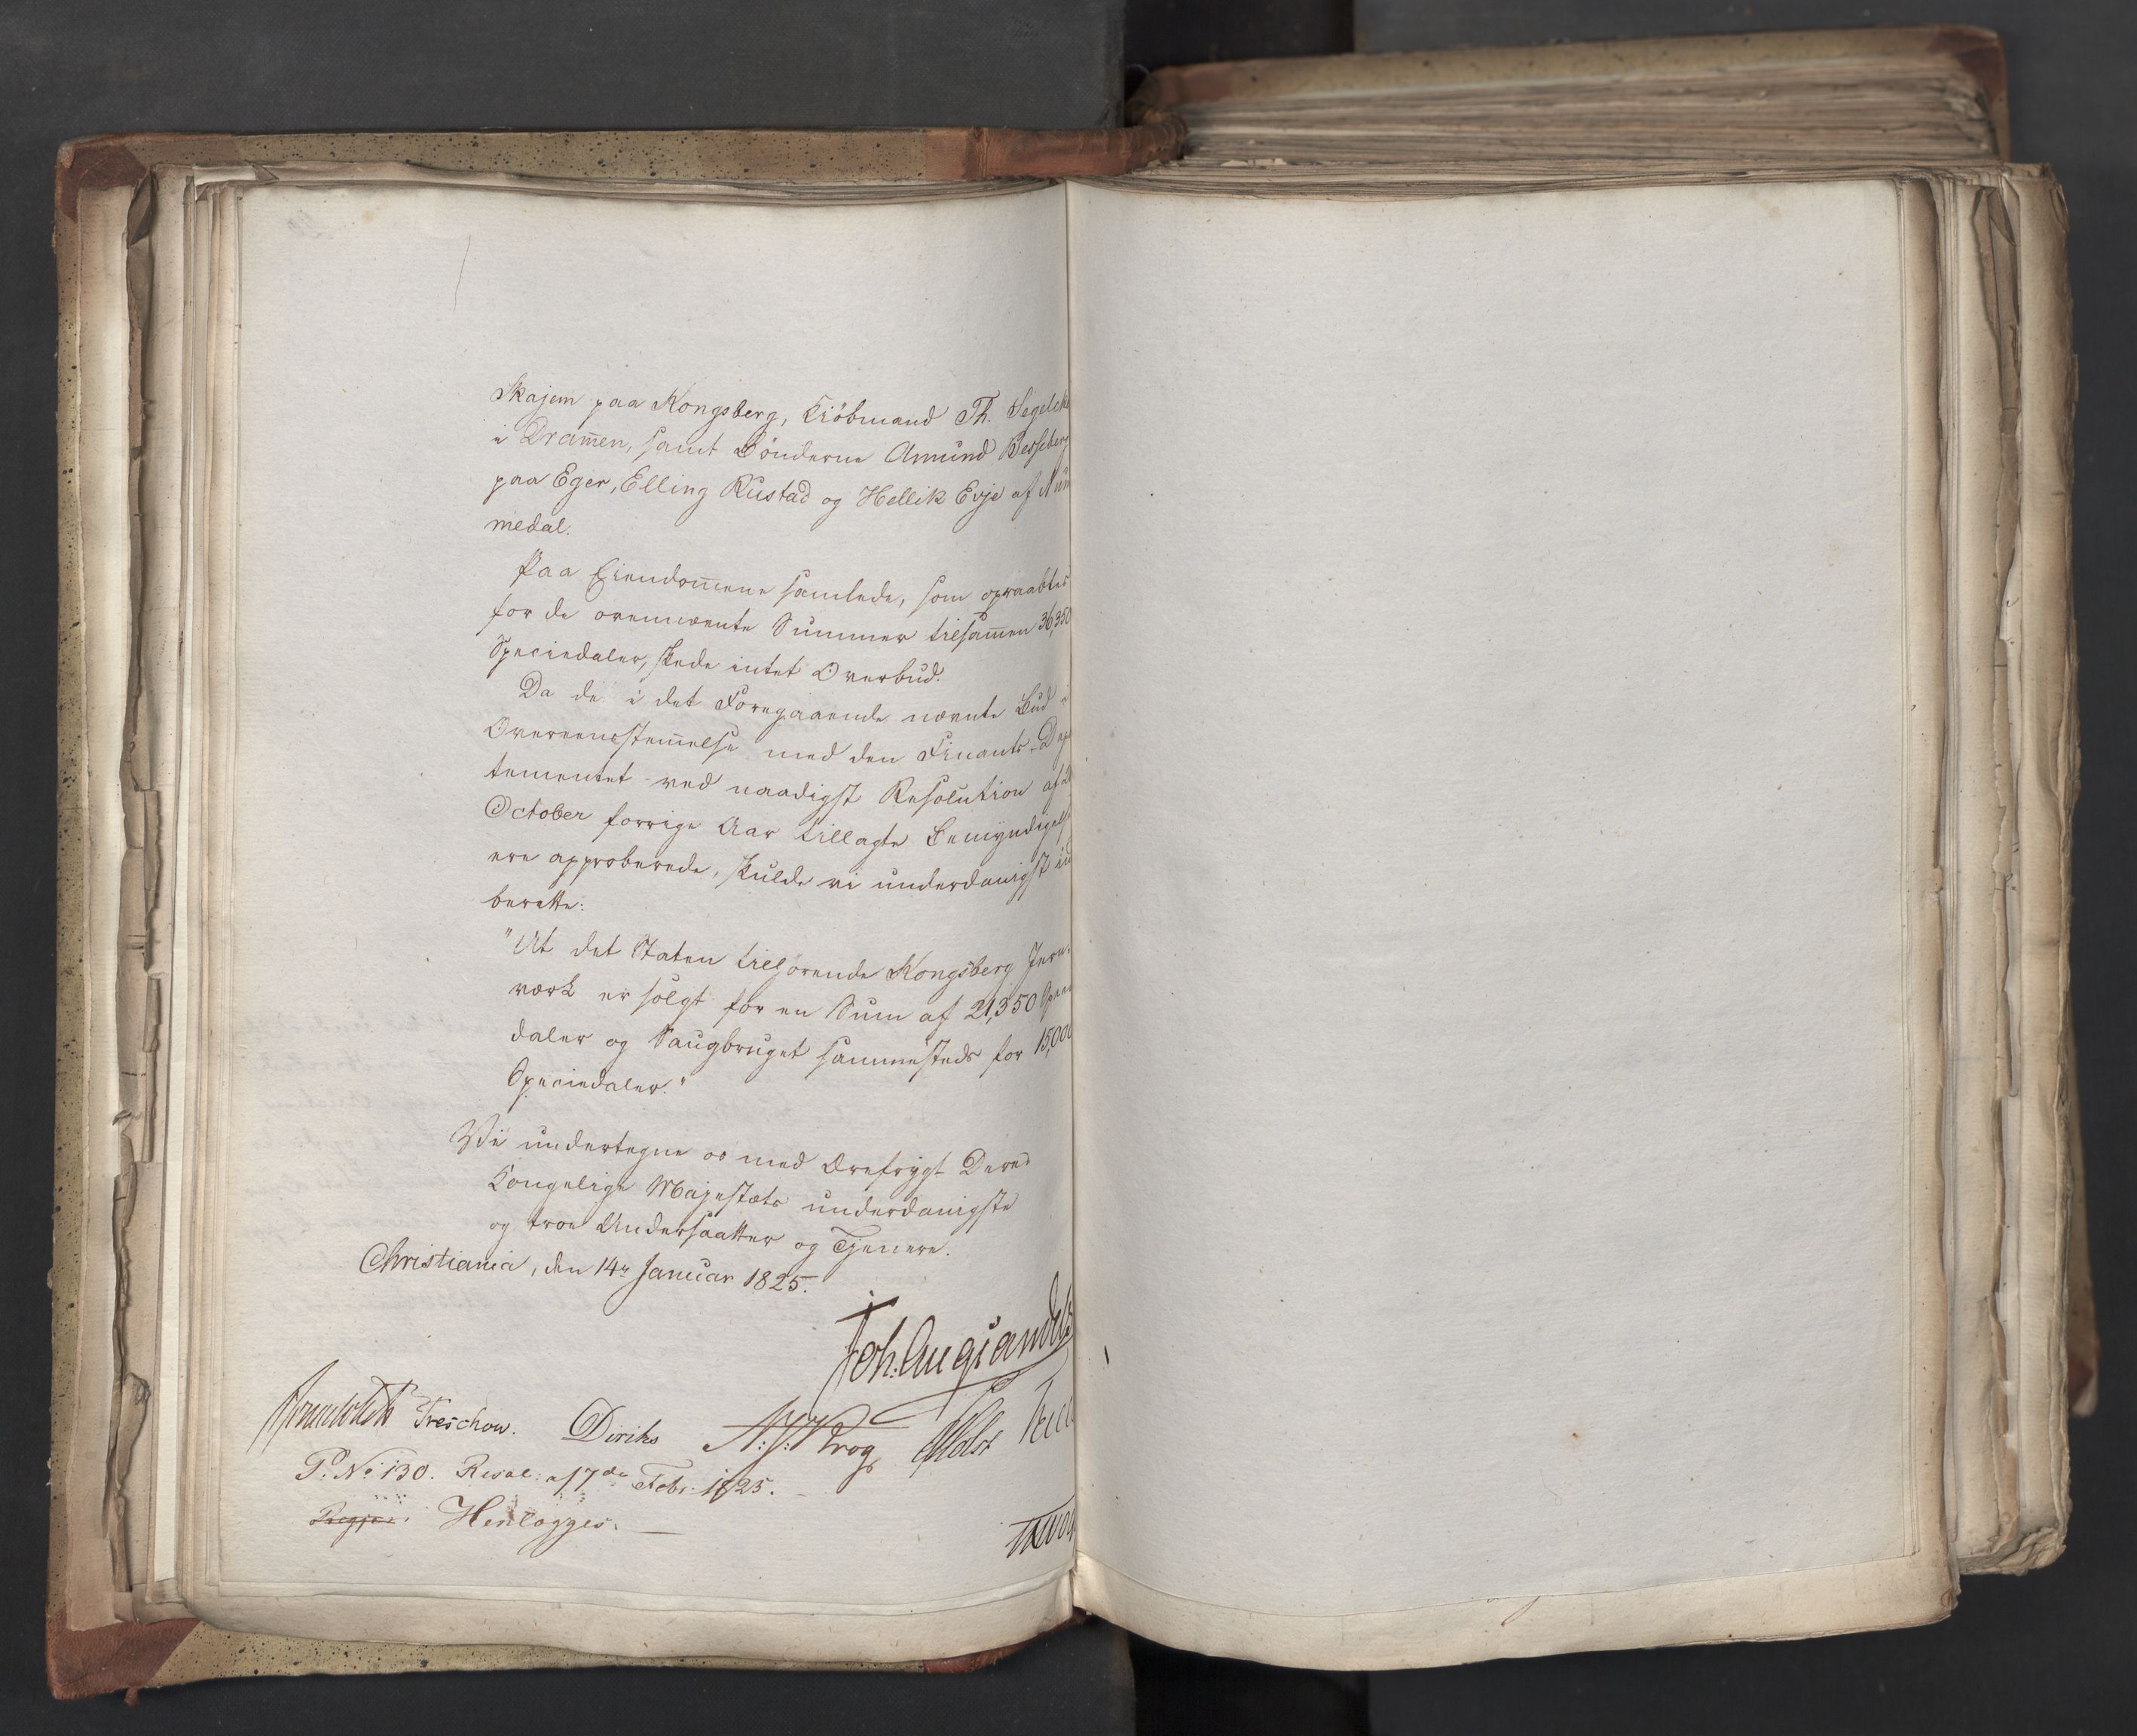 Skajem paa Kongsberg, Kiöbmand Th. Segelcke
i Dram̄en, samt Bönderne Amund Besseberg
paa Eger, Elling Rustad og Hellik Evje af Num
medal.
Paa Eiendom̄ene samlede, som opraabtes
for de ovennævnte Summer tilsam̄en 36,350
Speciedaler, skede intet Overbud.
Da de i det Foregaaende nævnte Bud i
Overeensstem̄else med den Finants-Dep
tementet ved naadigst Resolution af
October forrige Aar tillagte Bemyndigelse
ere approberede, skulde vi underdanigst ind
berette:
"At det Staten tilhörende Kongsberg Jern-
værk er solgt for en Sum af 21,350 Specie
daler og Saugbruget sammesteds for 15,000
Speciedaler."
Vi undertegne os med Ærefrygt Deres
Kongelige Majestæts underdanigste
og troe Undersaatter og Tjenere.
Christiania, den 14de Januar 1825.
Joh. Aug Sandels
Treschow. Diriks Krog Holst
P. No 130. Resol: af 7de Febr. 1825.
Henlægges.